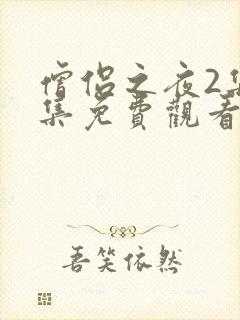 僧侣之夜2集
集免費觀看
吾笑依然